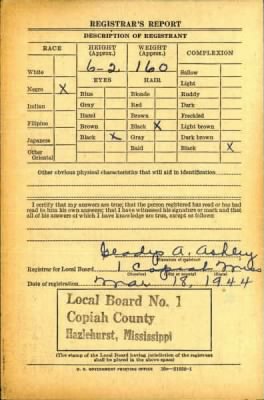 REGISTRAR'S REPORT
DESCRIPTION OF REGISTRANT
RACE HEIGHT (Approx.) WEIGHT (Approx.) COMPLEXION
White 6-2 160 Sallow
EYES HAIR Light
Negro X Blue Blonde Ruddy
Indian Gray Red Dark
Hazel Brown Freckled
Filipino Brown Black X Light brown
Japanese Black X Gray Dark brown
Other Oriental Bald Black X
Other obvious physical characteristics that will aid in identification
I certify that my answers are true; that the person registered has read or has
had read to him his own answers; that I have witnessed his signature or mark and that
all of his answers of which I have knowledge are true, except as follows:
Gladys A. Ashley
(Signature of registrar)
Registrar for Local Board 1 Copiah Miss
(Number) (City or county) (State)
Date of registration Mar 18, 1944
Local Board No. 1
Copiah County
Hazlehurst, Mississippi
(The stamp of the Local Board having jurisdiction of the registrant
shall be placed in the above space)
U. S. GOVERNMENT PRINTING OFFICE